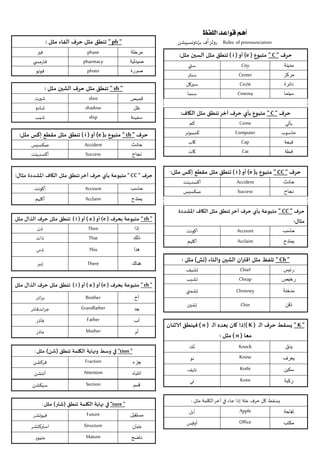 أهم قواعد اللفظ
Rules of pronounciation رولز أف برناونسييشن
حرف " C " متبوع (e أو i) تنطق مثل السين مثل:
مدينة City ستي
مركز Center سنتر
دائرة Circle سيركل
سينما Cinema سنما
حرف " C " متبوع بأي حرف آخر تنطق مثل الكاف:
يأتي Come كم
حاسوب Computer كمبيوتر
قبعة Cap كاب
قطة Cat كات
حرف " cc " متبوع بـ(e أو i) تنطق مثل مقطع إكس مثل:
حادث Accident أكسدينت
نجاح Success سكسيس
حرف " CC " متبوع بأي حرف آخر تنطق مثل الكاف المشددة
مثال:
حاسب Account أكونت
يمتدح Acclaim أكليم
" Ch " تلفظ مثل اقتران الشين والتاء (تش) مثل :
رئيس Chief تشيف
رخيص Cheap تشيب
مدخنة Chimney تشمني
ذقن Chin تشين
" K " يسقط حرف الـ ( K ) إذا كان بعده الـ ( n ) فينطق الاثنان
معا ( n ) مثل :
يدق Knock نك
يعرف Know نو
سكين Knife نايف
ركبة Knee ني
يسقط كل حرف علة إذا جاء في آخر الكلمة مثل :
تفاحة Apple أبل
مكتب Office أوفس
" ph " تنطق مثل حرف الفاء مثل :
مرحلة phase فيز
صيدلية pharmacy فارمسي
صورة photo فوتو
" sh " تنطق مثل حرف الشين مثل :
قميص shirt شيرت
ظل shadow شادو
سفينة ship شب
حرف " cc " متبوع بـ(e أو i) تنطق مثل مقطع إكس مثل:
حادث Accident سكسيس
نجاح Success أكسدينت
حرف " CC " متبوعة بأي حرف آخر تنطق مثل الكاف المشددة مثال:
حاسب Account أكونت
يمتدح Acclaim أكليم
" th " متبوعة بحرف (e أو a أو i) تنطق مثل حرف الذال مثل
إذا Then ذن
ذلك That ذات
هذا This ذس
هناك There ذير
" th " متبوعة بحرف (e أو a أو i) تنطق مثل حرف الذال مثل
أخ Brother برذر
جد Grandfather جراندفاذر
أب Father فاذر
أم Mother ماذر
" tion " في وسط ونهاية الكلمة تنطق (شن) مثل :
جزء Fraction فركشن
انتباه Attention أتنشن
قسم Section سيكشن
" ture " في نهاية الكلمة تنطق (شار) مثل:
مستقبل Future فيوتشر
بنيان Structure استركتشر
ناضج Mature متيور